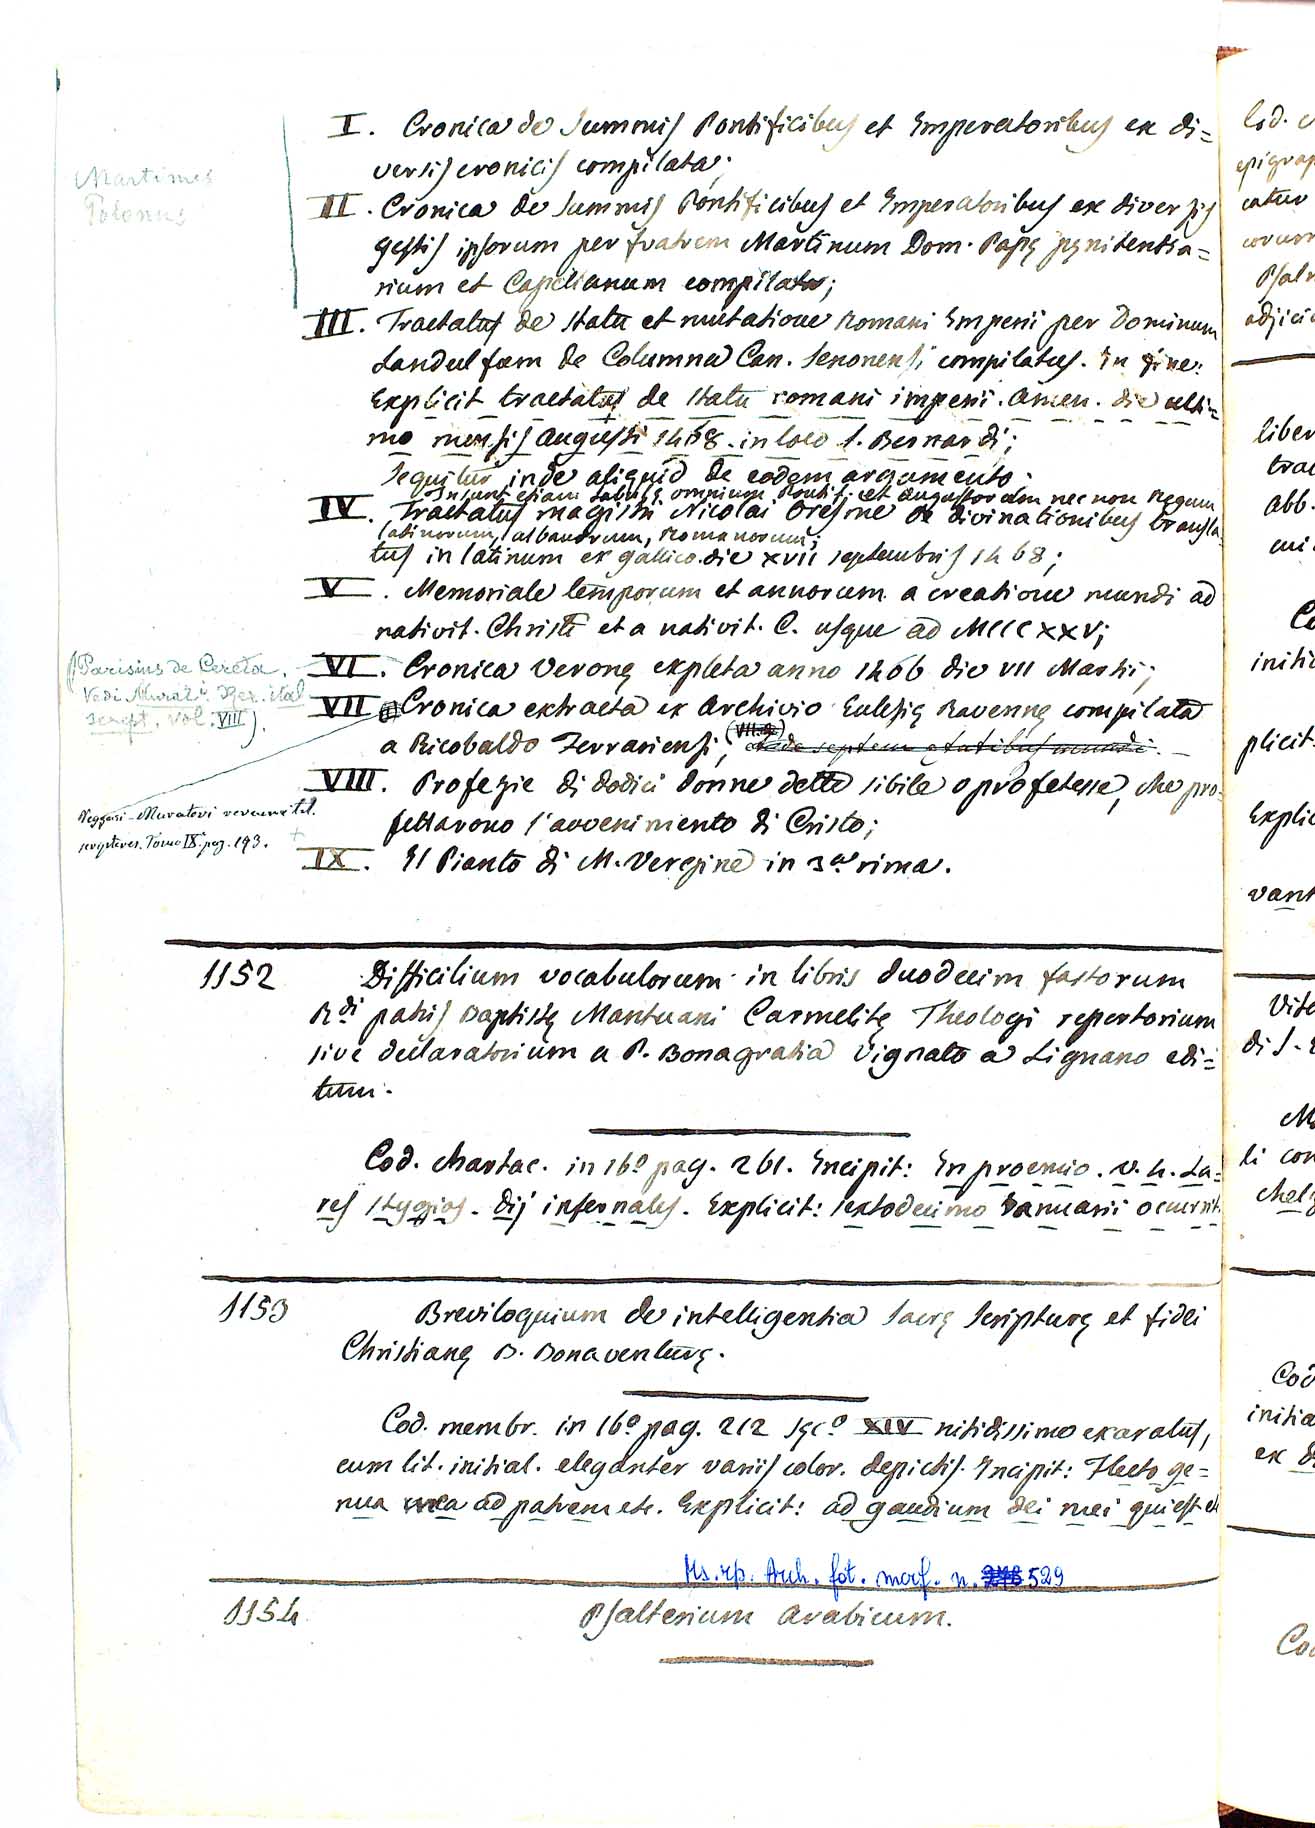 Martinus
Polonus
I. Cronica de Summis Pontificibus et Imperatoribus ex di=
versis cronicis compilata;
II. Cronica de Summis Pontificibus et Imperatoribus ex diversis
gestis ipsorum per fratrem Martinum Dom. Papę pęnitentia=
rium et Capellanum compilata;
III. Tractatus de statu et mutatione Romani Imperii per Dominum
Landulfum de Columna Can. Senonensi compilatus. In fine:
Explicit tractatus de statu romani imperii. Amen. die ulti=
mo mensis Augusti 1468. in loco S. Bernardi;
Sequitur inde aliquid de eodem argumento.
Insunt etiam tabulę omnium Pontif. et Augustorum nec non Regum
latinorum, albanorum, Romanorum;
IV. Tractatus magistri Nicolai Oresme de divinationibus transla=
tus in latinum ex gallico die XVII septembris 1468;
V. Memoriale temporum et annorum a creatione mundi ad
nativit. Christi et a nativit. C. usque ad MCCCXXV;
(Parisius de Cereta.
Vedi Murat. Rer. ital.
script. vol. VIII).
VI. Cronica Veronę expleta anno 1466 die VII Martii;
VII Cronica extracta ex Archivio Eclesię Ravennę compilata
a Ricobaldo Ferrariensi, de septem ętatibus mundi.
VIII. Profezie di dodici donne dette sibile o profetesse, che pro=
fettarono l'avvenimento di Cristo;
Veggasi Muratori rerum ital.
scriptores. Tomo IX. pag. 193. +
IX. Il Pianto di M. Vergine in 3ª rima.
1152 Difficilium vocabulorum in libris duodecim fastorum
Rdi patris Baptistę Mantuani Carmelitę Theologi repertorium
sive declaratorium a P. Bonagratia Vignato a Lignano edi=
tum.
Cod. chartac. in 16º pag. 261. Incipit: In proemio. v. 4. La=
res stygios. dij infernales. Explicit: sextodecimo Ianuarii ocurrit.
1153 Breviloquium de intelligentia Sacrę Scripturę et fidei
Christianę B. Bonaventurę.
Cod. membr. in 16º pag. 212 sęcº XIV nitidissime exaratus,
cum lit. initial. eleganter variis color. depictis. Incipit: Flecto ge=
nua mea ad patrem etc. Explicit: ad gaudium dei mei qui est etc
Ms. rip. Arch. fot. morf. n. 529
1154 Psalterium Arabicum.